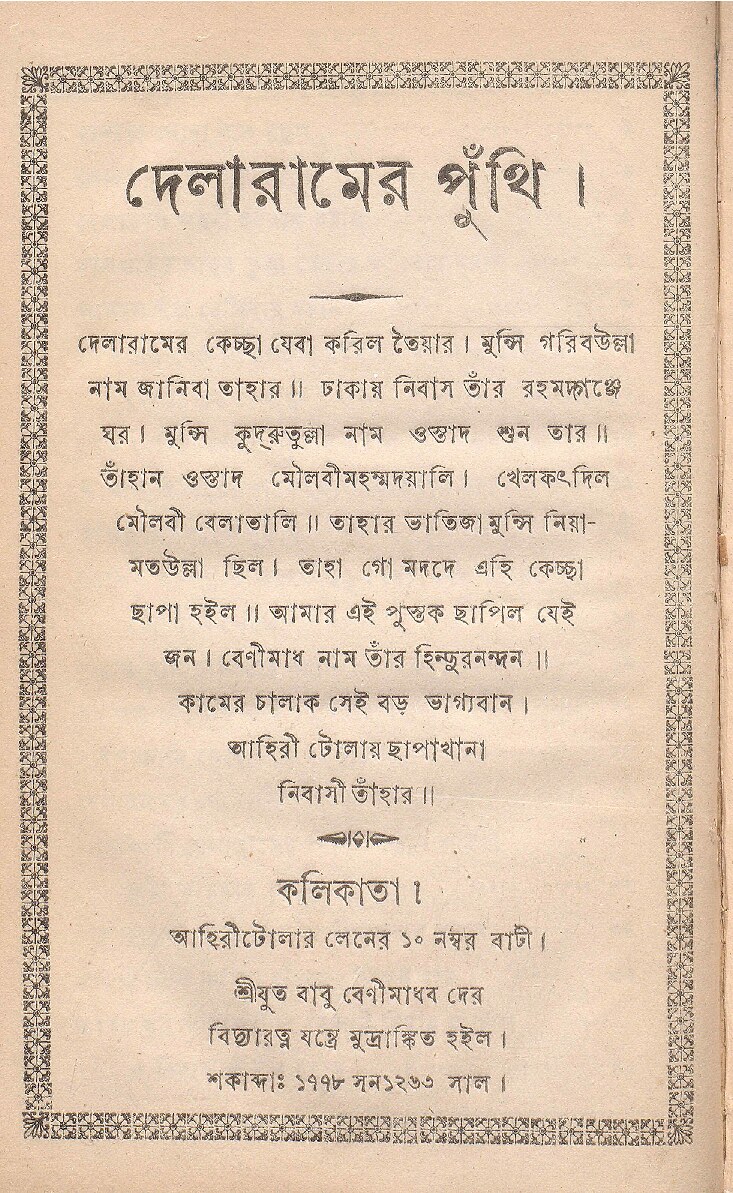 দেলারামের পুঁথি ।
দেলারামের কেচ্ছা যেবা করিল তৈয়ার । মুন্সি গরিবউল্লা
নাম জানিবা তাহার ॥ ঢাকায় নিবাস তাঁর রহমদ্গঞ্জে
ঘর । মুন্সি কুদ্রুতুল্লা নাম ওস্তাদ শুন তার ॥
তাঁহান ওস্তাদ মৌলবীমহম্মদয়ালি । খেলকৎদিল
মৌলবী বেলাতালি ॥ তাহার ভাতিজা মুন্সি নিয়া-
মতউল্লা ছিল । তাহা গো মদদে এহি কেচ্ছা
ছাপা হইল ॥ আমার এই পুস্তক ছাপিল যেই
জন । বেণীমাধ নাম তাঁর হিন্দুরনন্দন ॥
কামের চালাক সেই বড় ভাগ্যবান ।
আহিরী টোলায় ছাপাখানা
নিবাসী তাঁহার ॥
কলিকাতা ।
আহিরীটোলার লেনের ১০ নম্বর বাটী ।
শ্রীযুত বাবু বেণীমাধব দের
বিদ্যারত্ন যন্ত্রে মুদ্রাঙ্কিত হইল ।
শকাব্দাঃ ১৭৭৮ সন১২৬৩ সাল ।